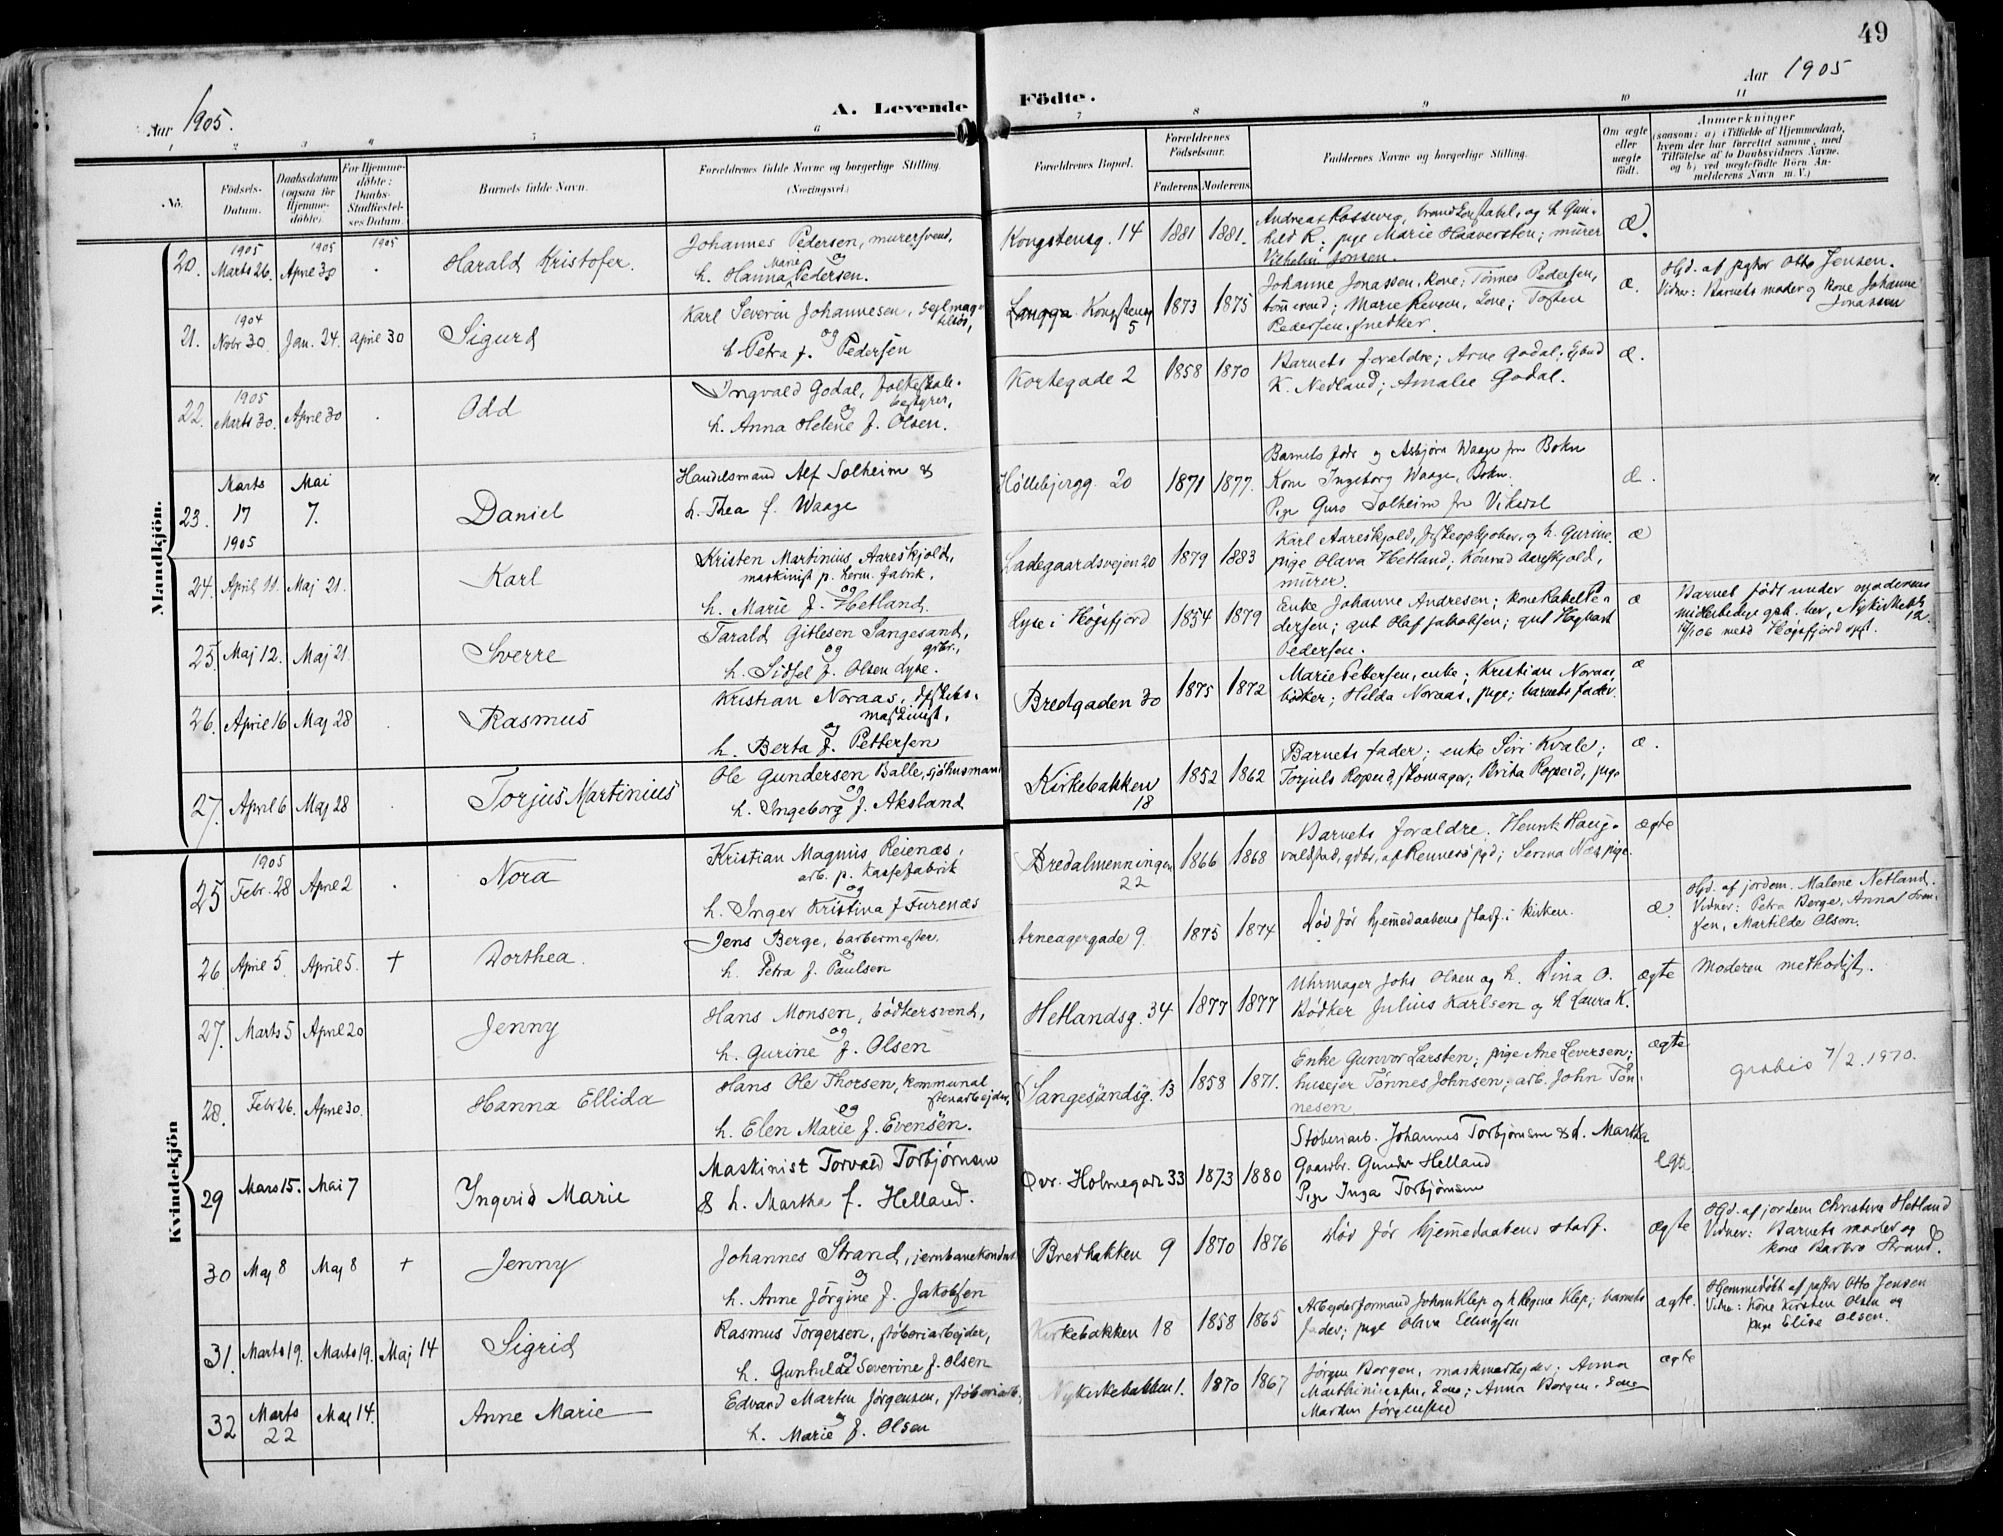 49
Aar 1905.
A. Levende Födte.
Aar 1905
1 2 3 4 5 6 7 8 9 10 11
No.
Födsels-
Datum.
Daabsdatum
(ogsaa for
Hjemme-
döbte).
For Hjemme-
döbte:
Daabs-
Stadfæstel-
ses Datum.
Barnets fulde Navn.
Forældrenes fulde Navne og borgerlige Stilling.
(Næringsvei.)
Forældrenes Bopæl.
Forældrenes
Födselsaar.
Faderens. Moderens.
Faddernes Navne og borgerlige Stilling.
Om ægte
eller
uægte
födt.
Anmærkninger
(saasom: a) i Tilfælde af Hjemmedaab,
hvem der har forrettet samme, med
Tilföielse af to Daabsvidners Navne,
og b) ved uægtefödte Börn An-
melderens Navn m. V.)
Mandkjön.
20. 1905 Marts 26. 1905 April 30 1905 . Harald Kristofer.
Johannes Pedersen, murersvend,
og
h. Hanna Marie Pedersen.
Kongstensg. 14 1881 1881.
Andreas Rossevig, brandkonstabel, og h. Gun-
hild R; pige Marie Haaversten; murer
Vilhelm Jonsen.
Æ.
21. 1904 Novbr 30. Jan. 24. April 30 Sigurd
Karl Severin Johannesen, seglmager
og
h. Petra f. Pedersen
Langga Kongstensg 5 1873 1875
Johanne Jonassen, kone; Tønnes Pedersen,
tømmermd; Marie Reven, kone; Torsten
Pedersen, snedker.
æ.
Hjd. af pastor Otto Jensen.
Vidner: Barnets moder og kone Johanne
Jonassen
22. 1905 Marts 30. April 30 . Odd
Ingvald Godal, folkeskole-
bestyrer,
og
h. Anna Helene f. Olsen.
Kortegade 2 1858 1870
Barnets forældre; Arne Godal;
K. Nedland; Amalie Godal.
æ.
23. Marts 17 1905 Mai 7. Daniel
Handelsmand Alf Solheim &
h. Thea f. Waage
Høllebjergg. 20 1871 1877.
Barnets fadr og Asbjørn Waage fra Bokn
Kone Ingeborg Waage, Bokn.
Pige Guro Solheim fra Vikedal
æ.
24. April 11. Maj 21. Karl
Kristen Martinius Aareskjold,
maskinist p. herm. fabrik,
og
h. Marie f. Hetland.
Ladegaardsvejen 20 1879 1883
Karl Aareskjold, fiskeopkjøber, og h. Gurine,
pige Olava Hetland; Konrad Aareskjold,
murer.
æ
25. Maj 12. Maj 21. Sverre
Tarald Gitlesen Sangesand,
gbr.,
og
h. Sidsel f. Olsen Lyse.
Lyse i Høgsfjord 1854 1879
Enke Johanne Andresen; kone Rakel Pe-
dersen; gut Olaf Jakobsen; gut Hagbart
Pedersen.
æ
Barnet født under moderens
midlertidige oph. her, Nykirkebk
12. 12/1 06 medd Høgsfjord spgt.
26. April 16 Maj 28 . Rasmus
Kristian Noraas, dpskibs-
maskinist,
og
h. Berta f. Pettersen
Bredgaden 30 1875 1872
Marie Pettersen, enke; Kristian Noraas,
bøker; Hilda Noraas, pige; barnets fader.
æ
27. April 6 Maj 28 . Torjus Martinius
Ole Gundersen Balle, sjøhusmand
og
h. Ingeborg f. Aksland
Kirkebakken 18 1852 1862
Barnets fader; enke Siri Kvale;
Torjuls Ropeid, skomager; Brita Ropeid, pige
æ.
Kvindekjön
25 1905 Febr. 28 April 2 . Nora
Kristian Magnus Reienæs,
arb. p. kassefabrik
og
h. Inger Kristina f. Furenæs
Bredalmenningen 22 1866 1868
Barnets forældre. Henrik Haug-
valdstad, gdbr. af Rennesø pgd; Serina Næs, pige.
ægte
26 April 5. April 5. + Dorthea.
Jens Berge, barbermester.
og
h. Petra f. Paulsen
Arneagergade 9. 1875 1874
Død før hjemmedaabens stadf. i kirken.
æ.
Hjd. af jordem. Malene Netland.
Vidner: Petra Berge, Anna Sven-
sen, Martilde Olsen.
27. Marts 5 April 20 Jenny
Hans Monsen, bødkersvend,
og
h. Gurine f. Olsen
Hetlandsg. 34 1877 1877
Uhrmager Johs Olsen og h. Lina O.
Bødker Julius Karlsen og h Laura K.
ægte
Moderen methodist.
28. Febr 26. April 30. Hanna Ellida
Hans Ole Thorsen, kommunal
stenarbejder,
og
h. Elen Marie f. Evensen.
Sangesandsg. 13 1858 1871.
Enke Gunvor Larsten; pige Ane Leversen;
husejer Tønnes Johnsen; arb. John Tøn-
nesen
ægte
gratis 7/2.1970.
29 Mars 15. Mai 7 Ingerid Marie
Maskinist Torvald Torbjørnsen
& h. Martha f. Helland.
Øvr. Holmegade 33 1873 1880
Støberiarb. Johannes Torbjørnsen & h. Martha
Gaardbr. Gunder Helland
Pige Inga Torbjørnsen
Egte
30 Maj 8 Maj 8 + Jenny
Johannes Strand, jernbanekondukt
og
h. Anne Jörgine f. Jakobsen
Bredbakken 9 1870 1876
Død før hjemmedaabens stadf.
ægte
Hjd. af jordem Christine Hetland
Vidner: Barnets moder og
kone Barbro Strand.
31. Marts 19. Marts 19. Maj 14 Sigrid
Rasmus Torgersen, støberiarbejder,
og
h. Gunhilde Severine f. Olsen
Kirkebakken 18 1858 1865
Arbejdsformand Johan Klep og h Regine Klep; barnets
fader; pige Olava Edingsen
ægte.
Hjemmedøbt af pastor Otto Jensen
Vidner: Kone Kirsten Olsen og
pige Elise Olsen.
32 Marts 22 Maj 14. Anne Marie
Edvard Martin Jørgensen, støberiarb.,
og
h. Marie f. Olsen
Nykirkebakken 1. 1870 1867
Jørgen Borgen, maskinarbejder; Anna
Marthiniussen, kone; Anna Borgen, kone
Martin Jørgensen
ægte